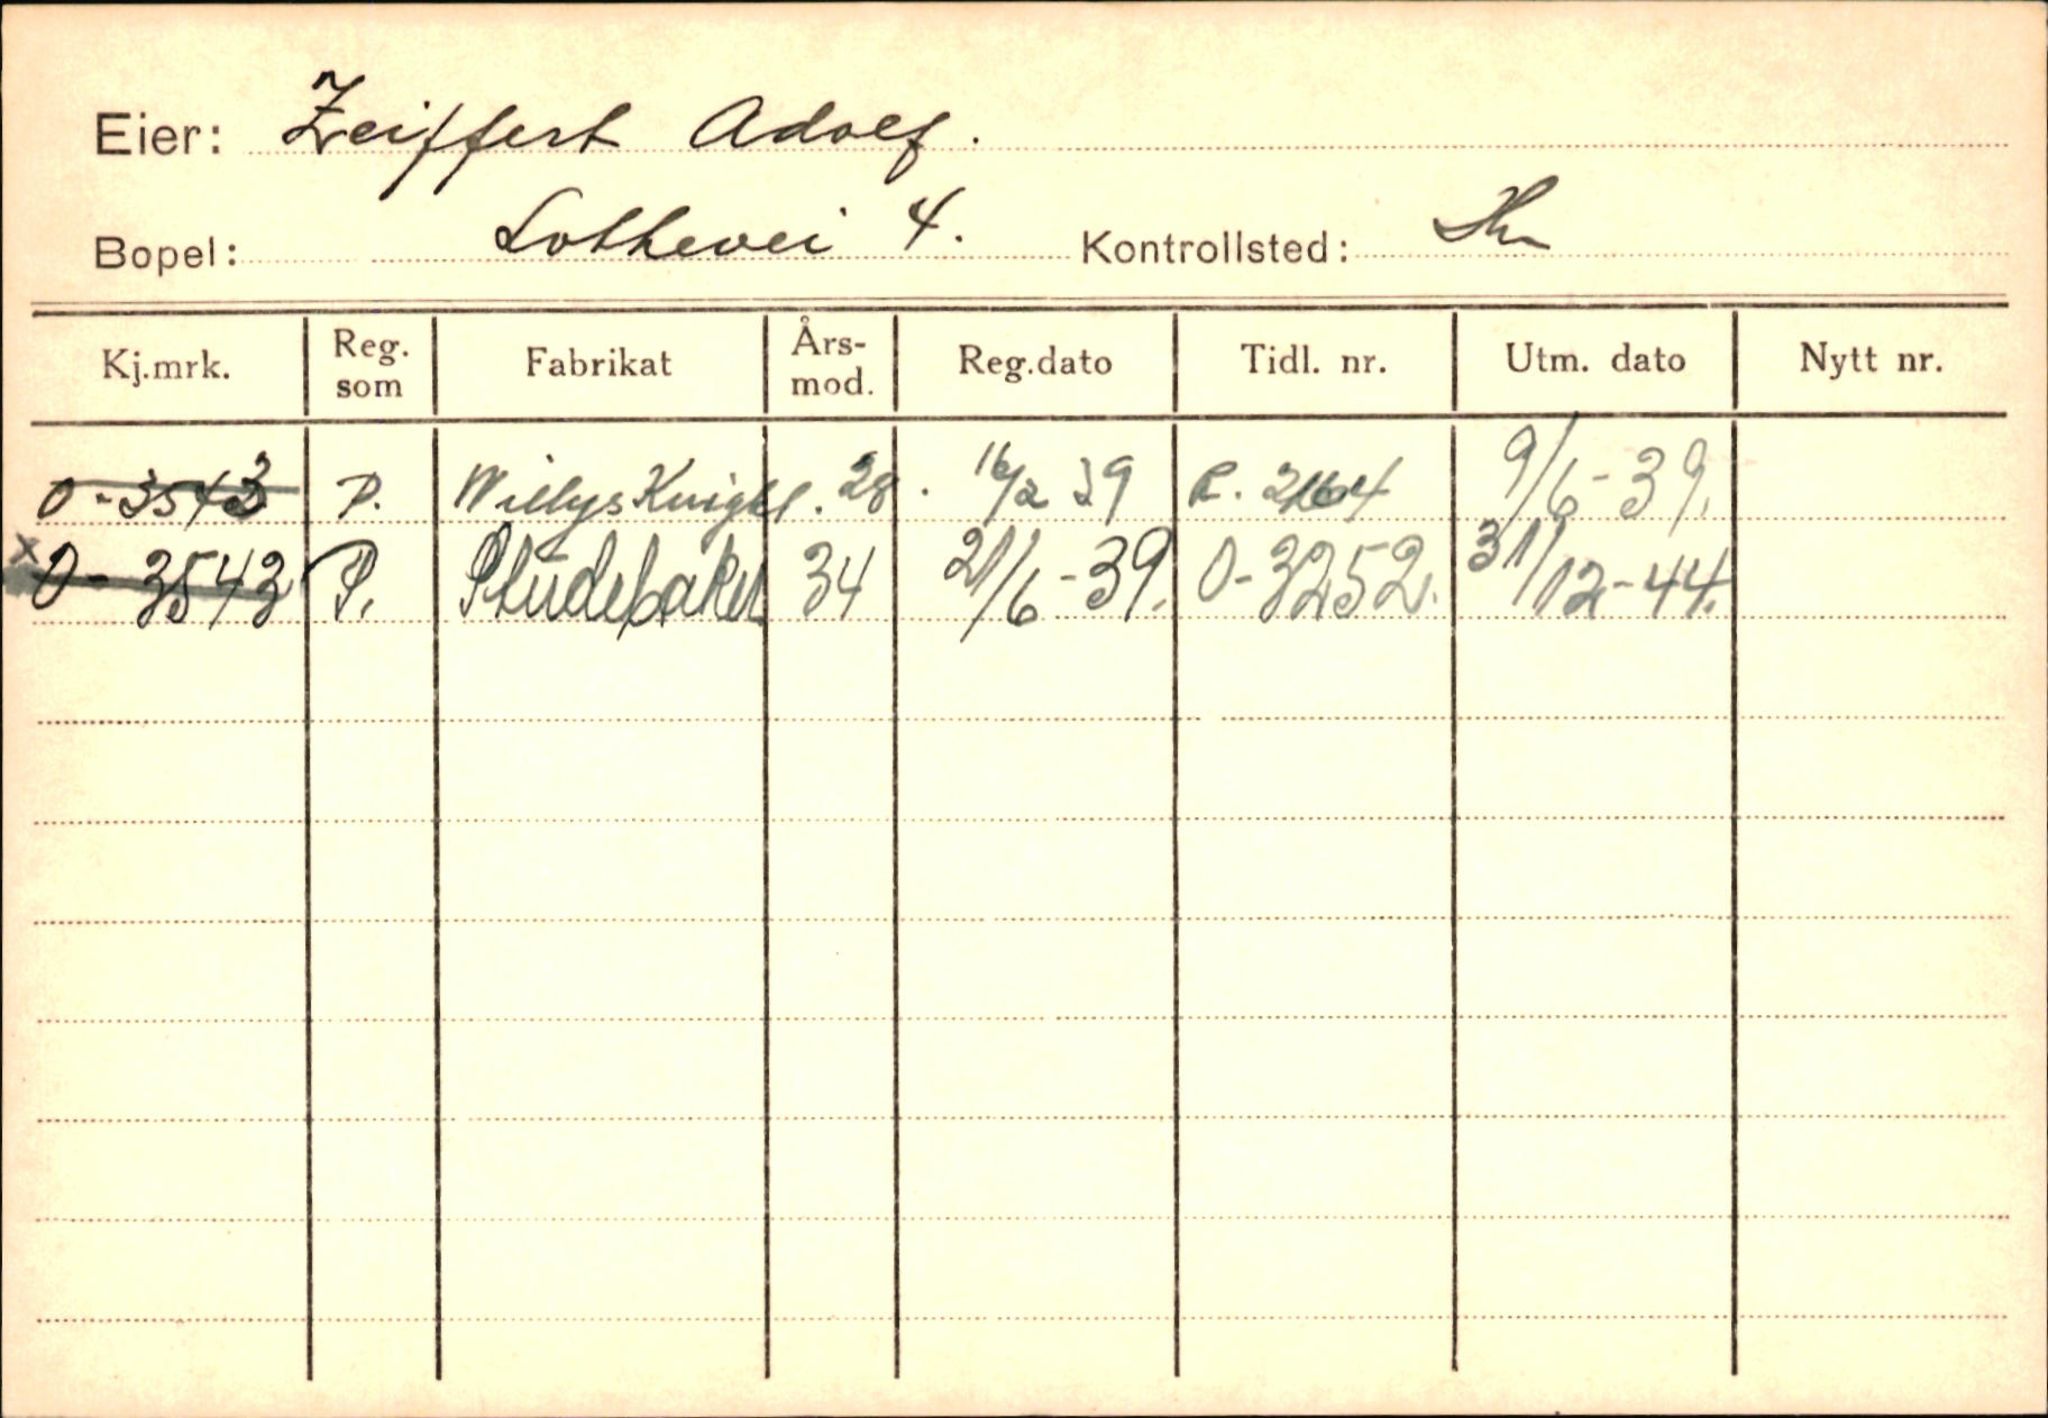 Eier: Zeiffert Adolf.
Bopel: Lothevei 4. Kontrollsted:
Kj.mrk. Reg. som Fabrikat Års-mod. Reg.dato Tidl. nr. Utm. dato Nytt nr.
O-3543 P. Willys Knight. 28. 16/2 39 C. 2164 9/6-39.
x O-3543 P. Studebaker 34 21/6-39. O-3252. 31/12-44.